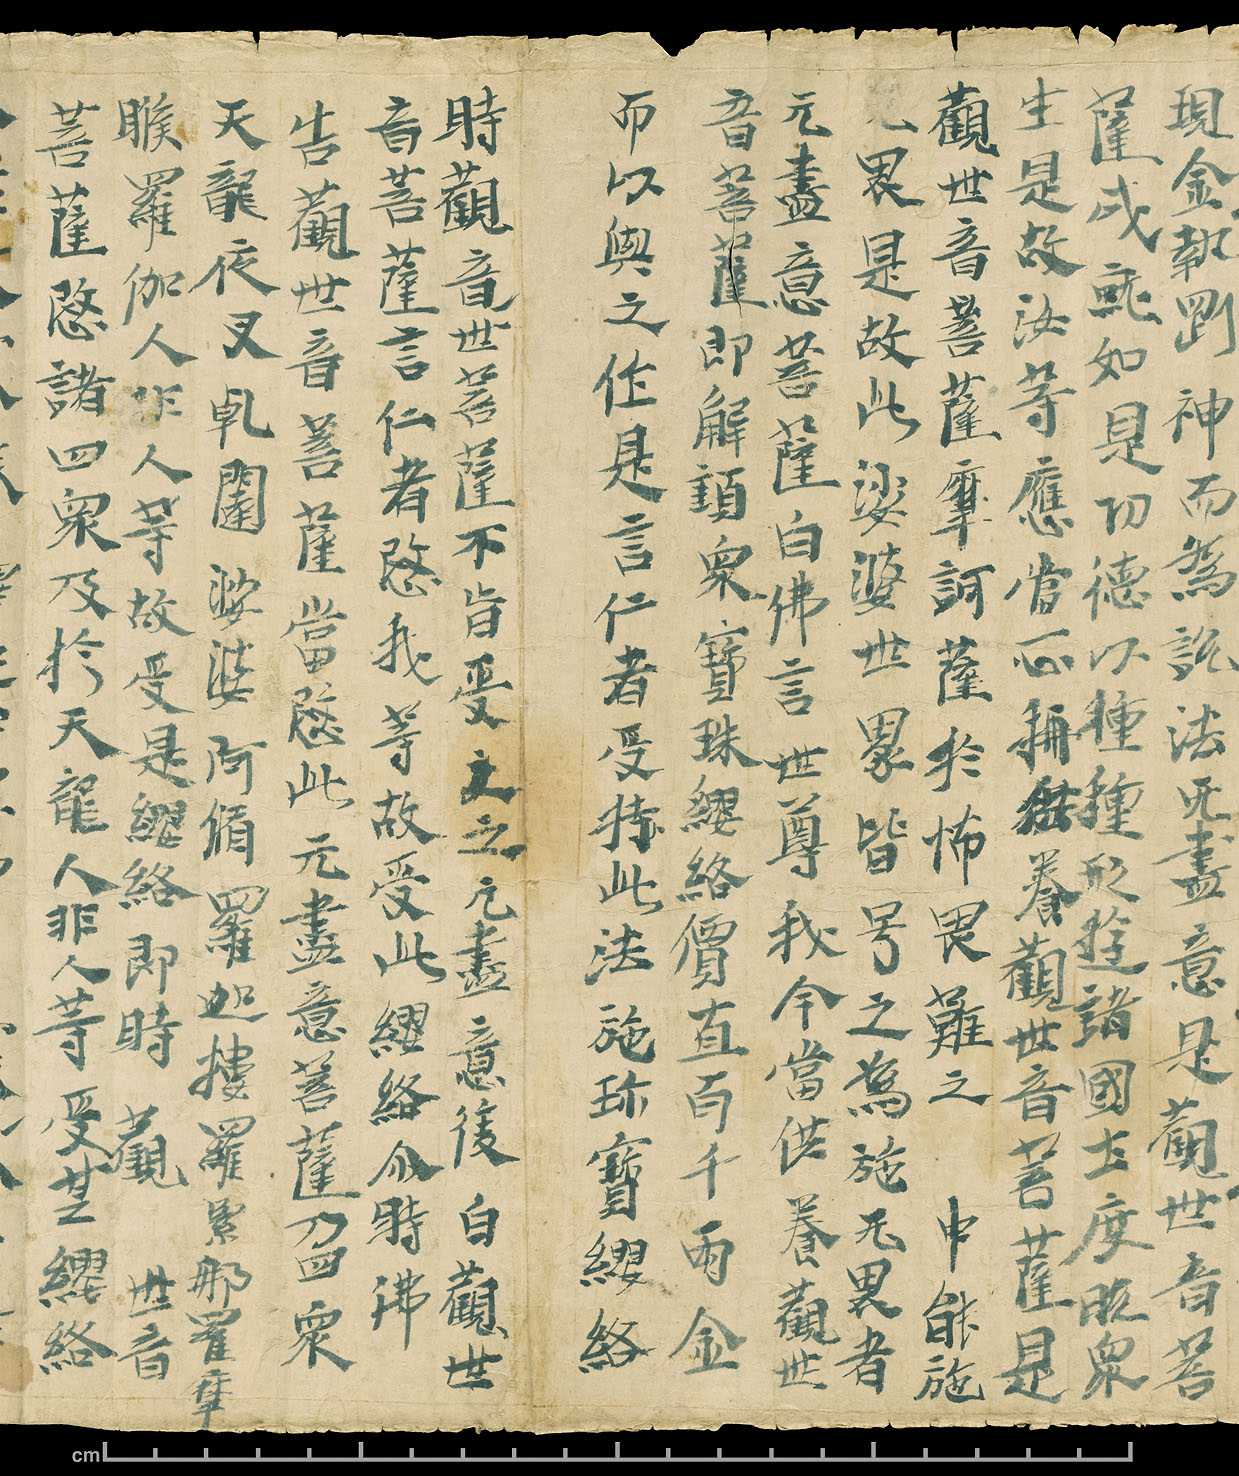 現金執剛神而為說法无盡意是觀世音菩
薩成就如是功德以種種形遊諸國土度脫衆
生是故汝等應當一心稱供養觀世音菩薩是
觀世音菩薩摩訶薩於怖畏難之中能施
无畏是故此娑婆世界皆号之為施无畏者
无盡意菩薩白佛言世尊我今當供養觀世
音菩薩即解頸衆寶珠纓絡價直百千兩金
而以與之作是言仁者受持此法施珎寶纓絡
時觀音世菩薩不肯受之无盡意復白觀世
音菩薩言仁者愍我等故受此纓絡尒時佛
告觀世音菩薩當愍此无盡意菩薩乃四衆
天龍夜叉乹闥娑婆阿脩羅迦樓羅緊那羅摩
睺羅伽人非人等故受是纓絡即時觀世音
菩薩愍諸四衆及於天龍人非人等受其纓絡